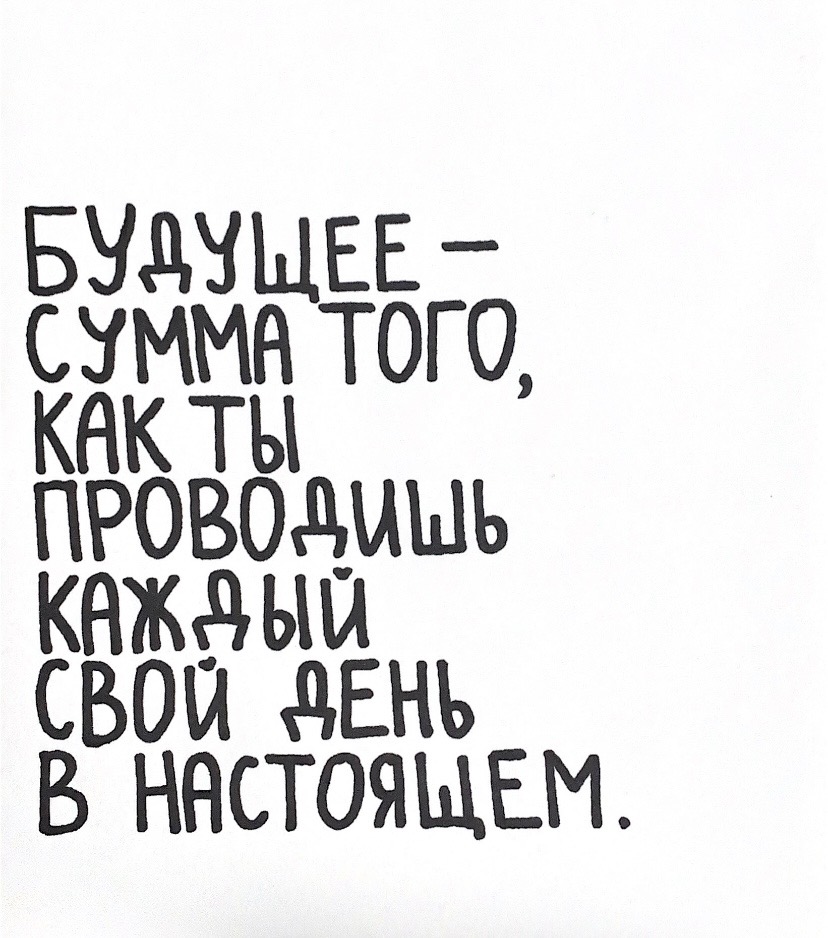 БУДУЩЕЕ –
СУММА ТОГО,
КАК ТЫ
ПРОВОДИШЬ
КАЖДЫЙ
СВОЙ ДЕНЬ
В НАСТОЯЩЕМ.